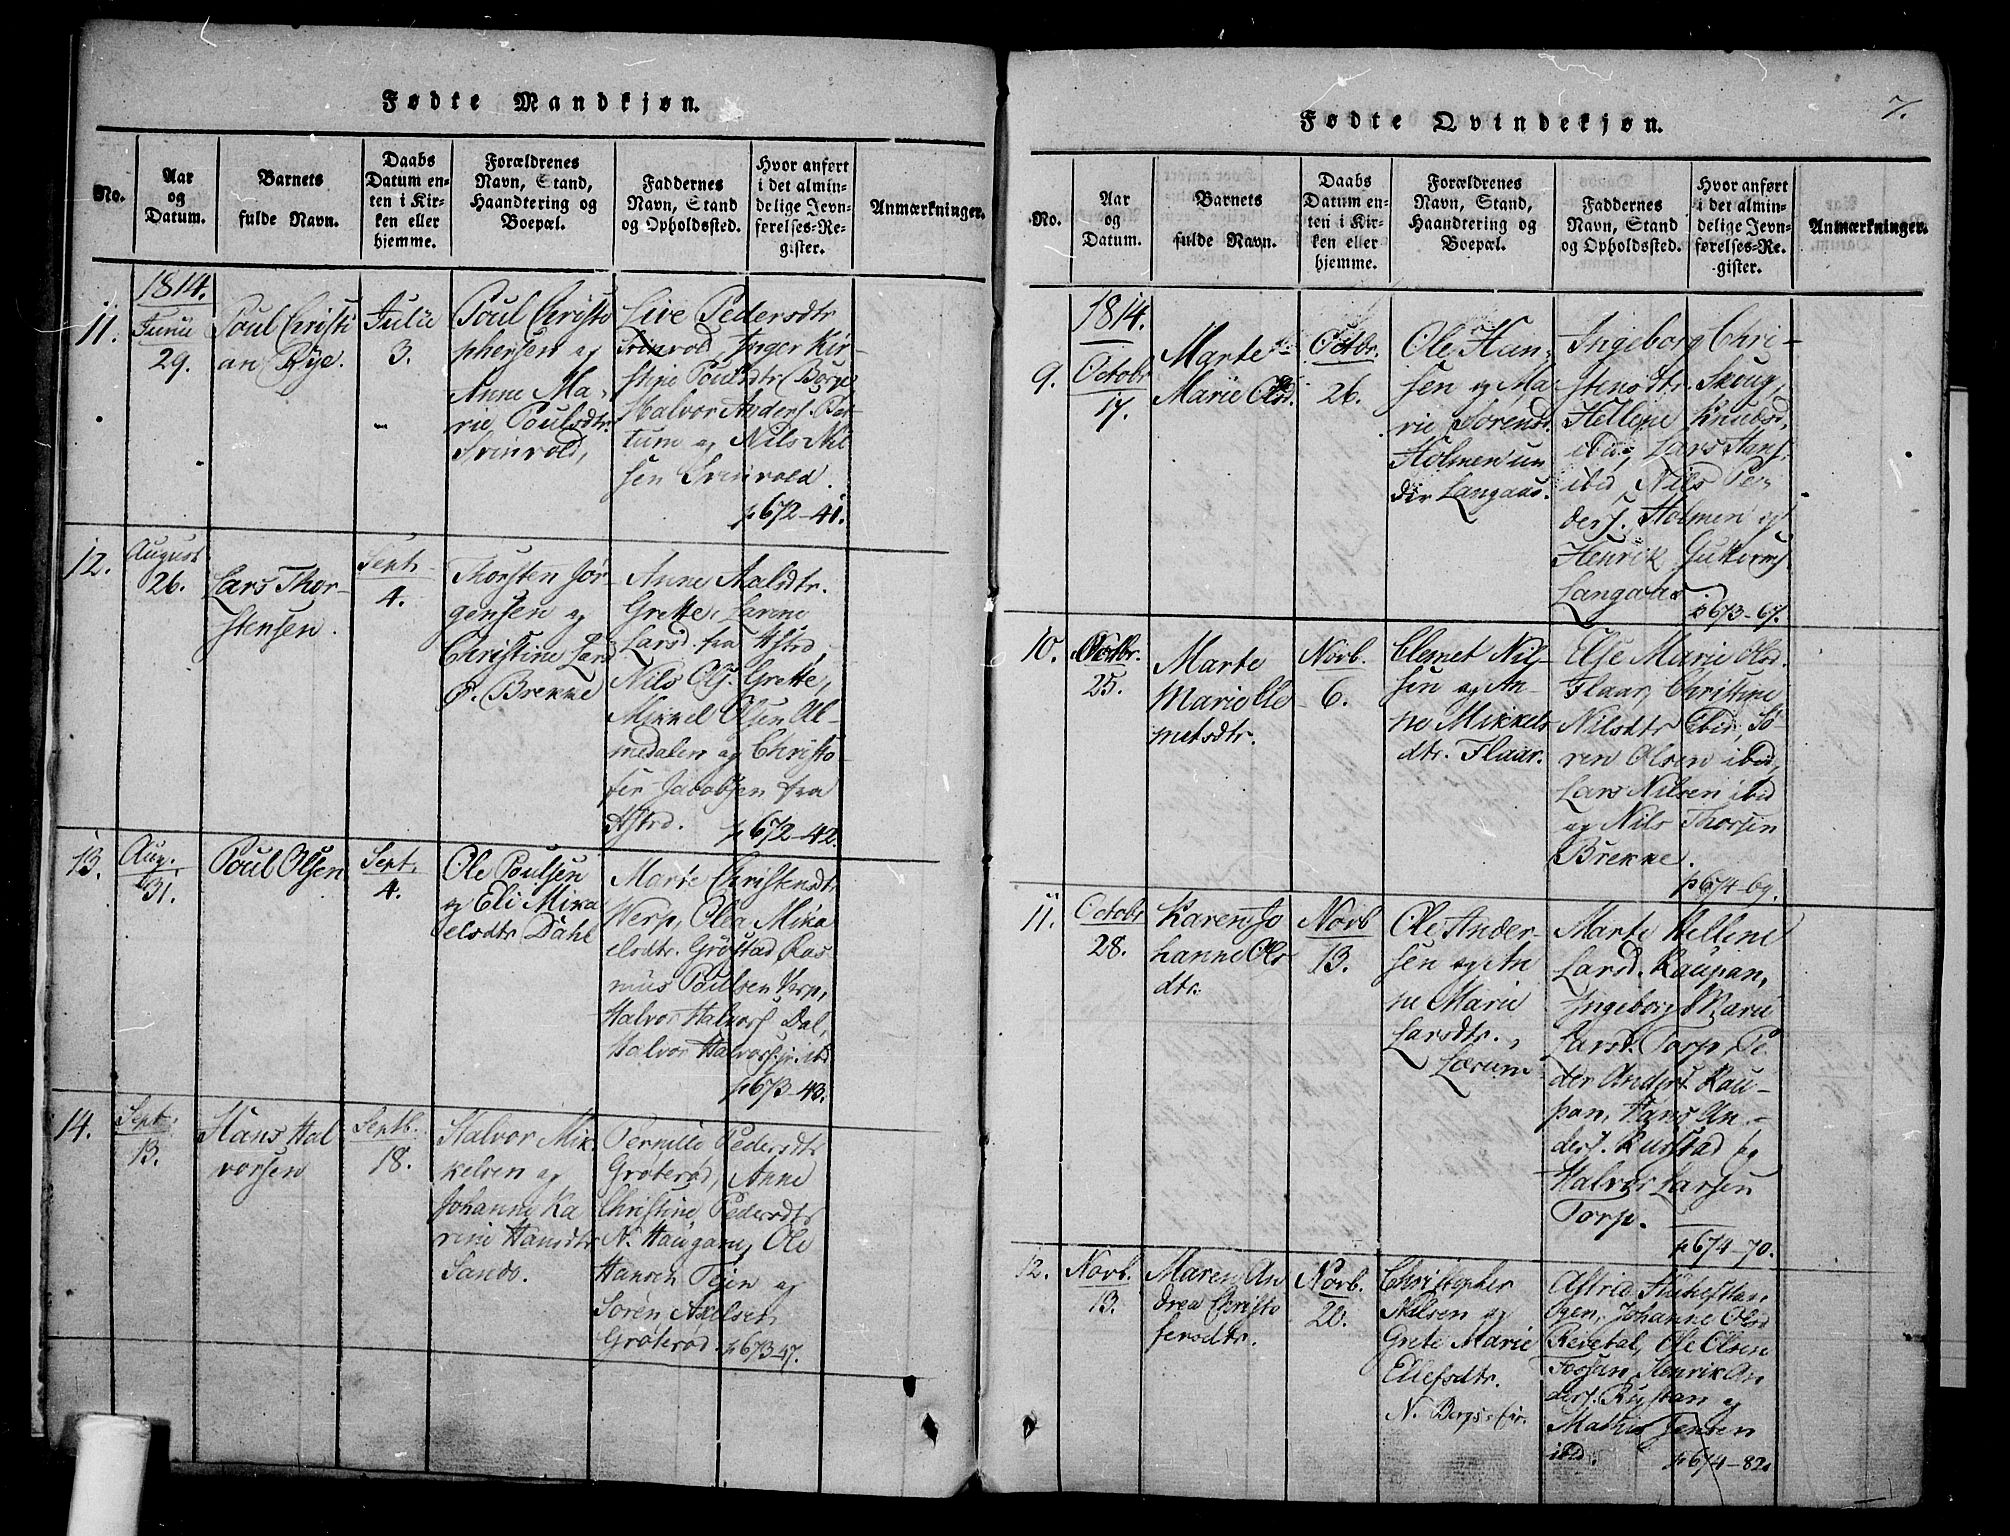 Fødte Mandkjøn.
No.
Aar
og
Datum.
Barnets
fulde Navn.
Daabs
Datum en-
ten i Kir-
ken eller
hjemme.
Forældrenes
Navn, Stand,
Haandtering og
Boepæl.
Faddernes
Navn, Stand
og Opholdssted.
Hvor anført
i det almin-
delige Jevn-
førelses-Re-
gister.
Anmærkninger.
1814.
11.
Junii
29.
Poul Christi
an Rye.
Julii
3.
Poul Christo
phersen og
Anne Ma-
rie Poulsdtr.
Svinvold,
Live Pedersdtr
Inger Kir-
stine Poulsdtr. Borge
Halvor Anders.
tum og Nils Nil
sen Svinvold.
p 672-41.
12.
August
26.
Lars Thor-
stensen.
Sept.
4.
Thorsten Jør-
gensen og
Christine Lars
d. Brekke
Anne Aalsdtr.
Grette, Karine
Larsd. fra
Nils Ols. Grette,
Mikkel Olsen Al-
medalen og Christo-
fer Jacobsen fra
p 672-42.
13.
Aug.
31.
Poul Olsen
Sept.
4.
Ole Poulsen
og Eli Mika
elsdtr Dahl
Marte Christensdtr
Werp, Olea Mika
elsdtr. Grøstad Ras
mus Poulsen Verp,
Halvor Halvors Dal,
Halvor Halvors. jr. ibd
p 673-43.
14.
Sept.
13.
Hans Hal
vorsen
Septb.
18.
Halvor Mik
kelsen og
Johanne Ka
rine Hansdtr
Sando.
Pernille Pedersdtr
Grøterød, Anne
Christine Pedersdtr
N. Haugane, Ole
Hansen Tejn og
Sören Axelsen
Grøterød. p 673-47.
7.
Fødte Qvindekjøn.
No.
Aar
og
Datum.
Barnets
fulde Navn.
Daabs
Datum en-
ten i Kir-
ken eller
hjemme.
Forældrenes
Navn, Stand,
Haandtering og
Boepæl.
Faddernes
Navn, Stand
og Opholdssted.
Hvor anført
i det almin-
delige Jevn-
førelses-Re-
gister.
Anmærkninger.
1814.
9.
Octobr
17.
Marte
Marie Olsd.
Octbr.
26.
Ole Han-
sen og Ma-
rie Sorensd.
Holmen un
der Langaas.
Ingeborg Chri-
stensdtr. Skoug,
Hellene Knudsd.
ibid, Lars Hans.
ibid Nils Pe-
ders. Holmen og
Henrik Gutterms
Langaas
p 673-67.
10.
25.
Marte
Marie Cle
metsdtr.
Novb.
6.
Clemet Nil-
sen og An-
ne Mikkels
dtr. Flaar.
Else Marie Olsd
Flaar, Christine
Nilsdtr Ibid, Sö
ren Olsen ibid,
Lars Nilsen ibid
og Nils Thorsen
Brekke.
p 674-69.
11.
Octobr
28.
Karen Jo
hanne Ols
dtr.
Novb
13.
Ole Ander
sen og An
ne Marie
Larsdtr.
Lœrum
Marte Hellene
Larsd. Kaupan,
Ingeborg Marie
Larsd. Torp, Pe
der Anders. Kau-
pan, Hans An-
ders. Rustad og
Halvor Larsen
Torp.
p 674-70.
12.
Novb.
13.
Maren An
drea Christo
fersdtr.
Novb.
20.
Christopher
Nielsen og
Grete Marie
Ellefsdtr.
N. Berg
Astrid
ogen, Johanne Olsd
Revetal, Ole Olsen
Fossan, Henrik An
ders. Rustan og
Jensen
ibid.
p 674-82.